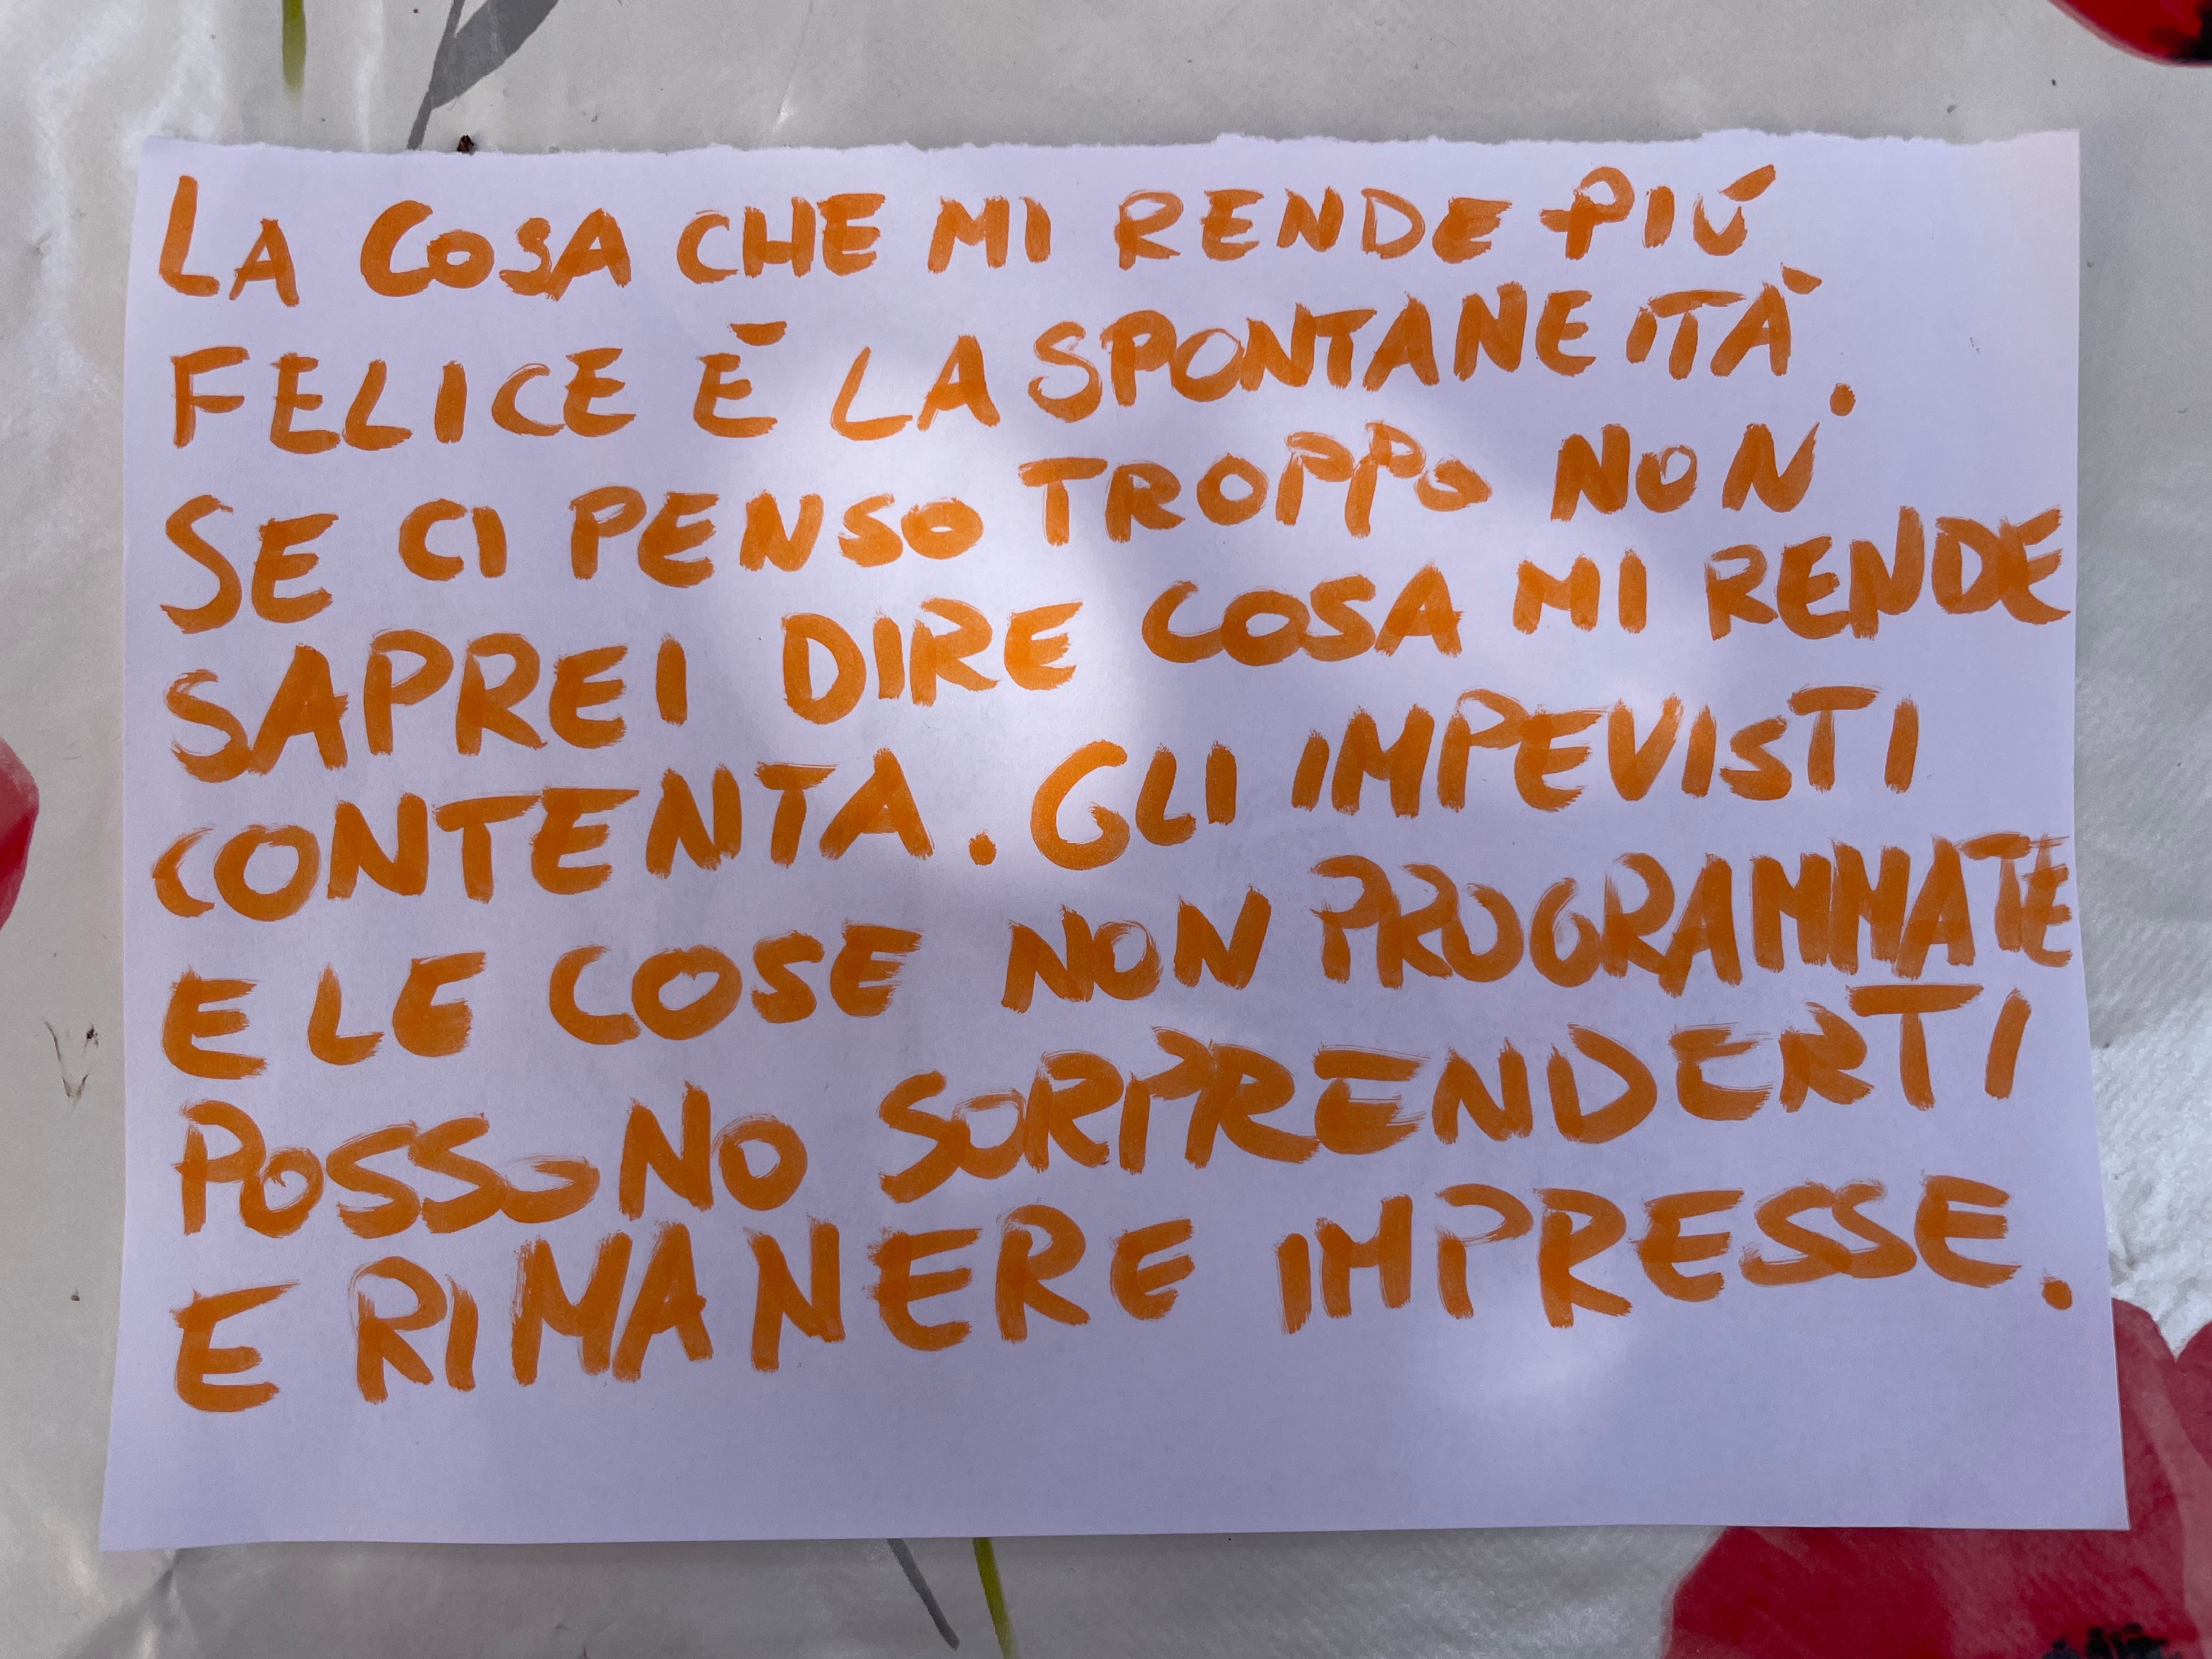 LA COSA CHE MI RENDE PIÚ
FELICE È LA SPONTANEITÀ.
SE CI PENSO TROPPO NON
SAPREI DIRE COSA MI RENDE
CONTENTA. GLI IMPEVISTI
E LE COSE NON PROGRAMMATE
POSSONO SORPRENDERTI
E RIMANERE IMPRESSE.